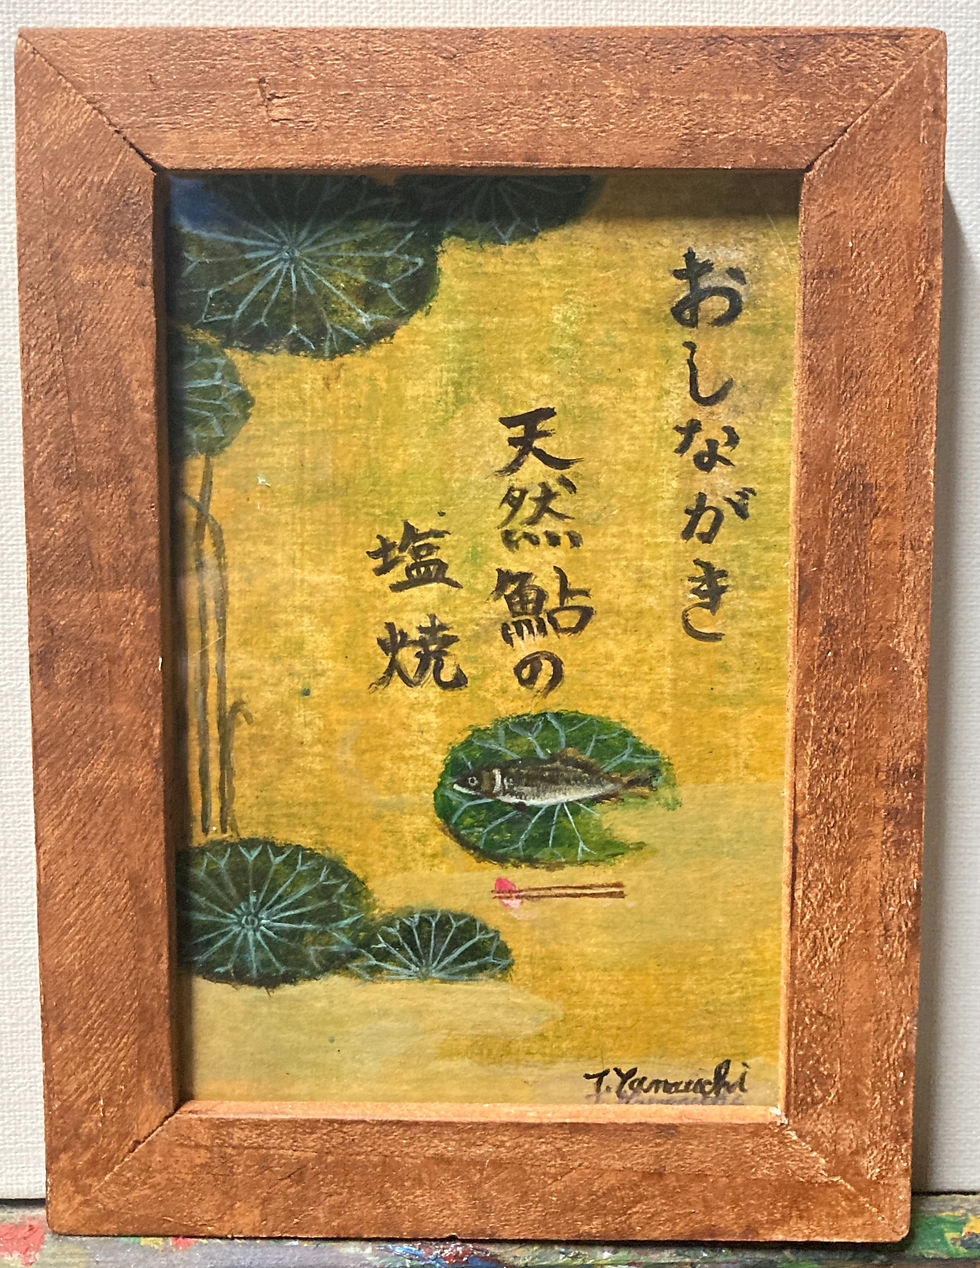 おしながき
天然鮎の
塩焼
T.Yamauchi